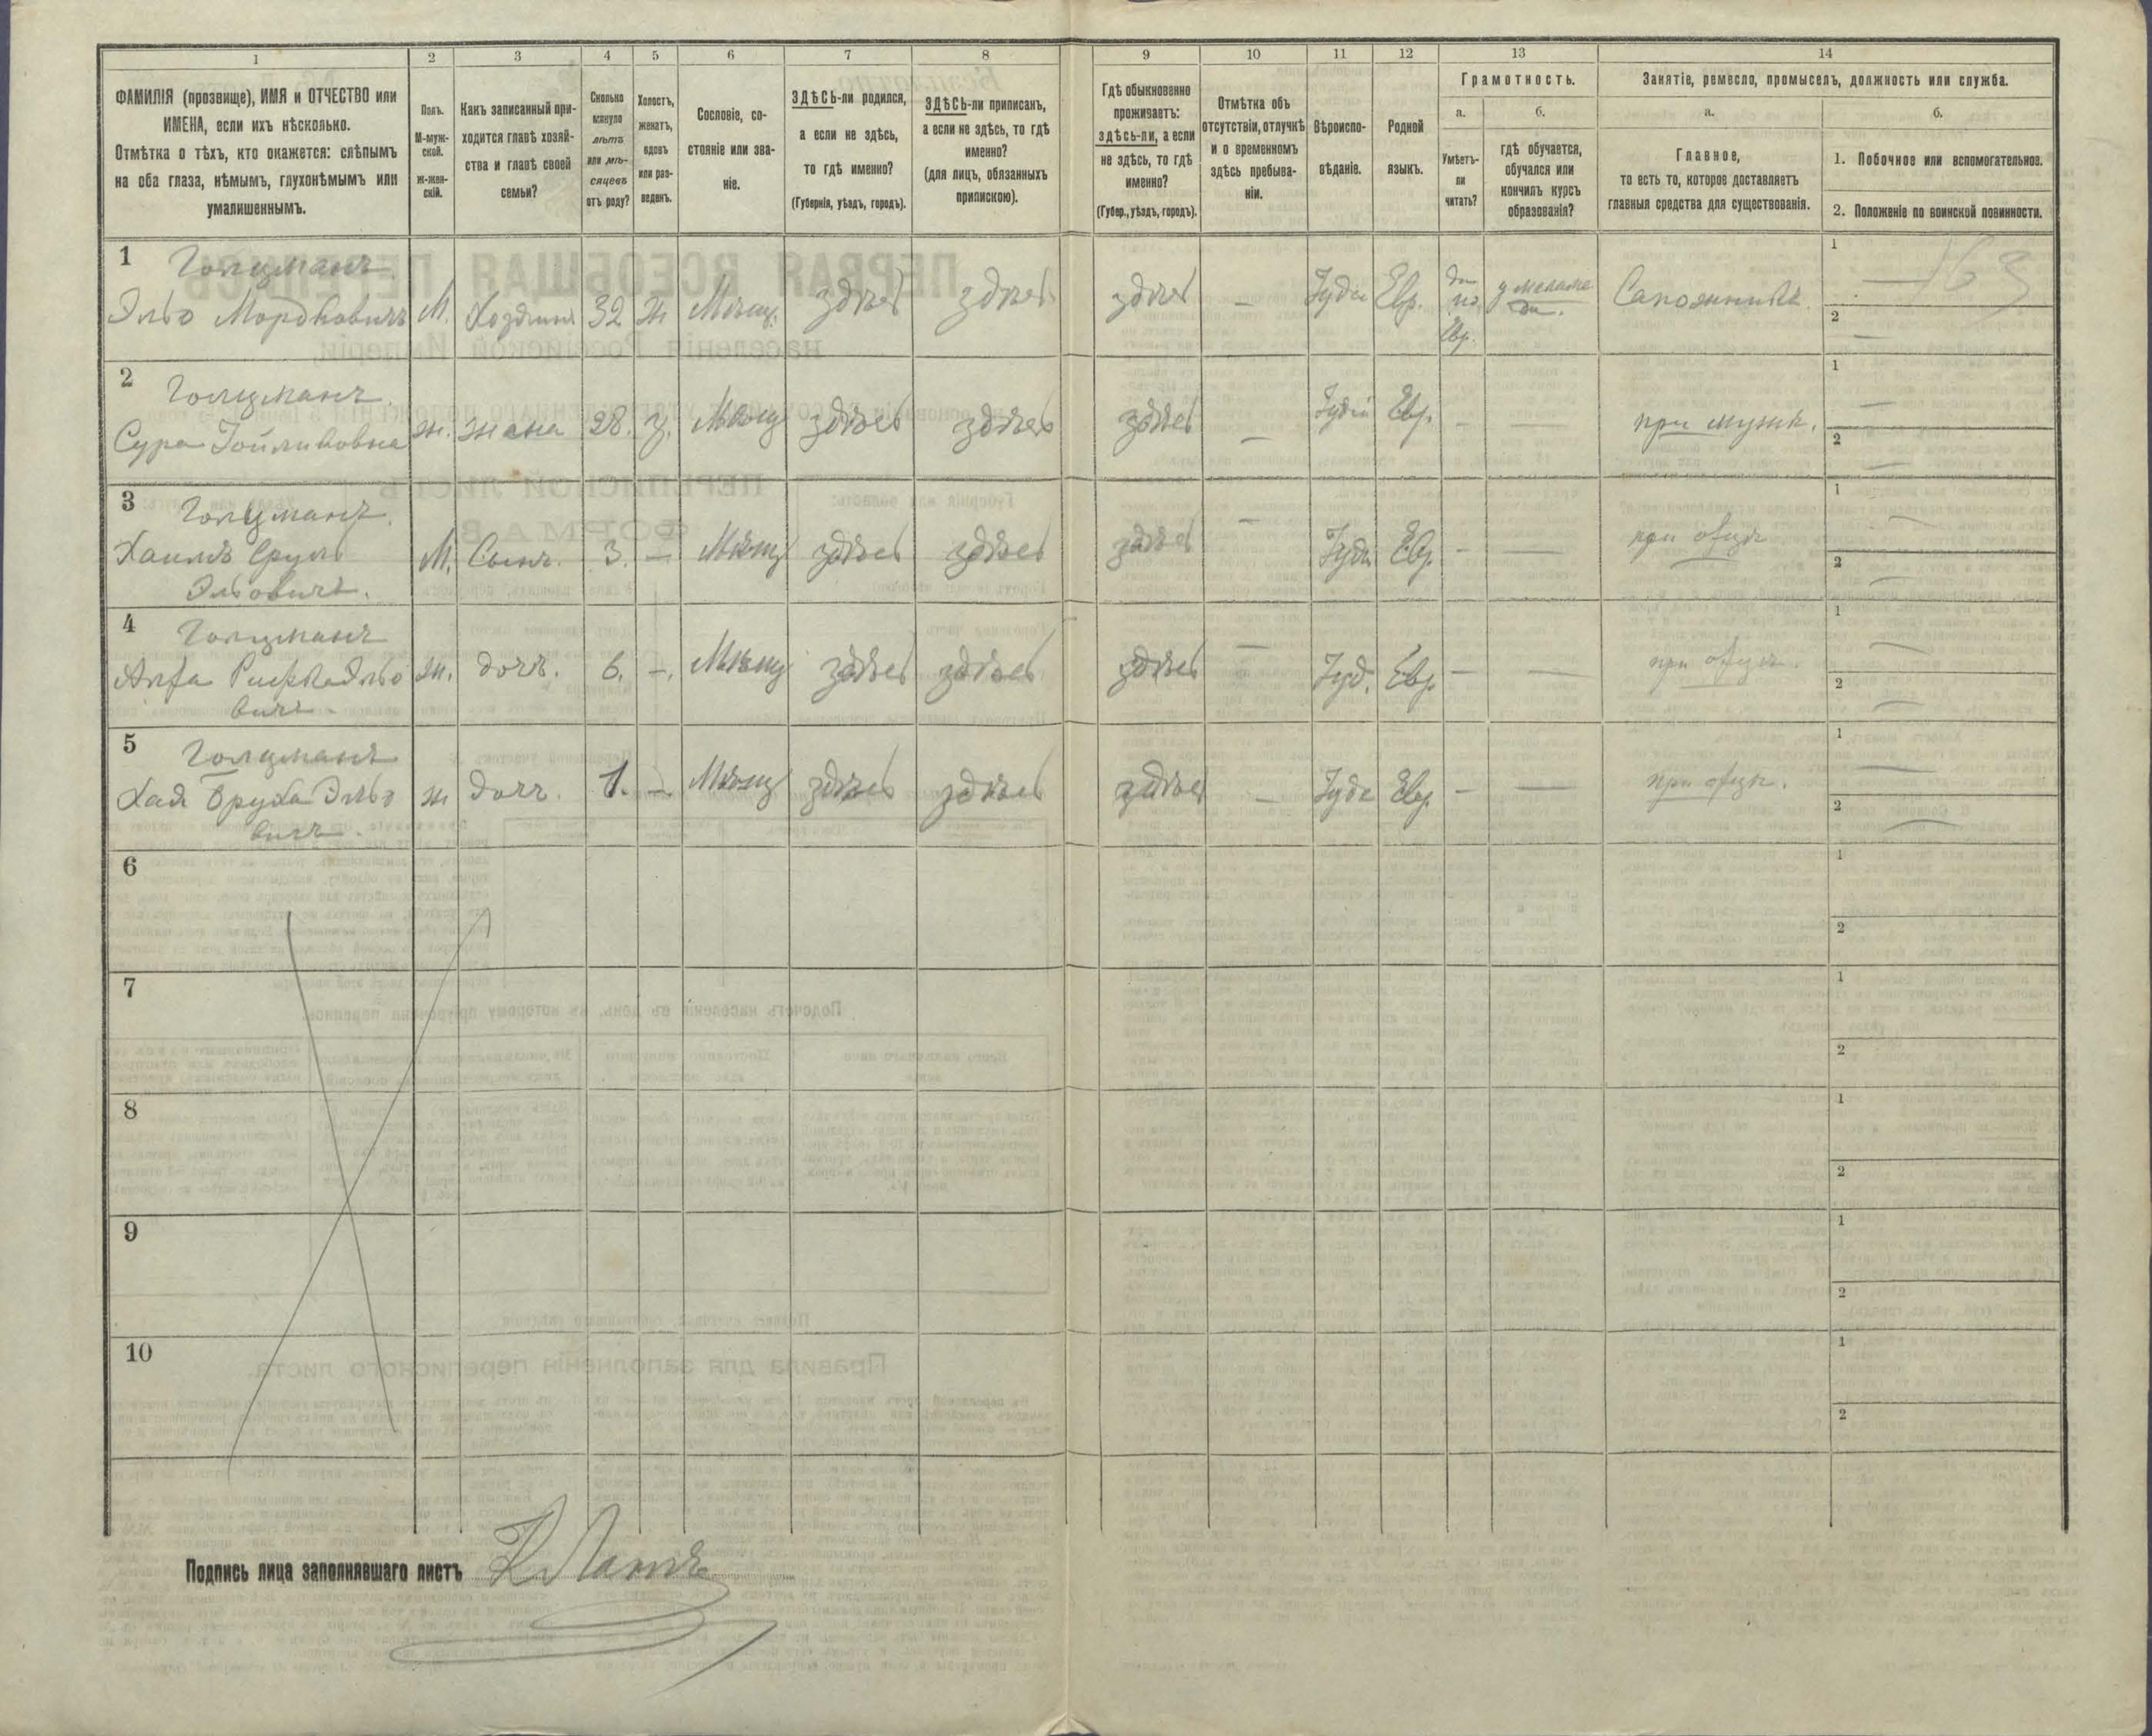 1 2 3 4 5 6 7 8 9 10 11 12 13 14
ФАМИЛІЯ (прозвище), ИМЯ и ОТЧЕСТВО или
ИМЕНА, если ихъ нѣсколько.
Отмѣтка о тѣхъ, кто окажется: слѣпымъ
на оба глаза, нѣмымъ, глухонѣмымъ или
умалишеннымъ.
Полъ.
М-муж-
ской.
Ж-жен-
скій.
Какъ записанный при-
ходится главѣ хозяй-
ства и главѣ своей
семьи?
Сколько
минуло
лѣтъ
или мѣ-
сяцевъ
отъ роду?
Холостъ,
женатъ,
вдовъ
или раз-
веденъ.
Сословіе, со-
стояніе или зва-
ніе.
ЗДѢСЬ-ли родился,
а если не здѣсь,
то гдѣ именно?
(Губернія, уѣздъ, городъ).
ЗДѢСЬ-ли приписанъ,
а если не здѣсь, то гдѣ
именно?
(для лицъ, обязанныхъ
припискою).
Гдѣ обыкновенно
проживаетъ:
здѣсь-ли, а если
не здѣсь, то гдѣ
именно?
(Губер., уѣздъ, городъ).
Отмѣтка объ
отсутствіи, отлучкѣ
и о временномъ
здѣсь пребыва-
ніи.
Вѣроиспо-
вѣданіе.
Родной
языкъ.
Грамотность.
а.
Умѣетъ-
ли
читать?
б.
гдѣ обучается,
обучался или
кончилъ курсъ
образованія?
Занятіе, ремесло, промыселъ, должность или служба.
а.
Главное,
то есть то, которое доставляетъ
главныя средства для существованія.
б.
1. Побочное или вспомогательное.
2. Положеніе по воинской повинности.
1 Голцманъ
Эльо Мордковичъ М. Хозяинъ 32 ж Мѣщ. здѣсь здѣсь здѣсь — Іуде Евр. Сапожникъ 1 —
2 —
163
2 Голцманъ.
Сура Іойликовна ж. жена 28. з. Мѣщ здѣсь здѣсь здѣсь — Іудей Евр. — — при мужѣ. 1 —
2 —
3 Голцманъ.
Хаимъ Сруль М. Сынъ. 3. — Мѣщ здѣсь здѣсь здѣсь — Іуде Евр — — при отцѣ 1 —
Эльовичъ. 2 —
4 Голцманъ
Рифка Эльо ж. дочь. 6. —. Мѣщ здѣсь здѣсь здѣсь — Іуд. Евр — — при отцѣ. 1 —
вичъ. 2 —
5 Голцманъ
Хая Бруха Эльо ж дочь. 1. —. Мѣщ здѣсь здѣсь здѣсь — Іуде Евр. — — при отцѣ. 1 —
вичъ. 2 —
6 1
2
7 1
2
8 1
2
9 1
2
10 1
2
Подпись лица заполнявшаго листъ